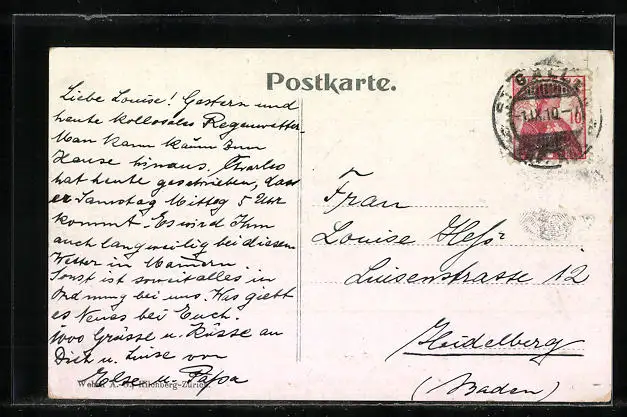 Postkarte.
ST. GALLEN
1.IX.10
10
Liebe Louise! Gestern und
heute kollosales Regenwetter.
Man kann kaum zum
Hause hinaus. Charles
hat heute geschrieben, dass
er Samstag Mittag 5 Uhr
kommt. Es wird Ihm
auch langweilig bei diesem
Wetter in
Sonst ist soweit alles in
Ordnung bei uns. Was giebt
es Neues bei Euch.
1000 Grüsse u. Küsse an
Dich u. Luise von
Else u. Papa
Frau
Louise Hess
Luisenstrasse 12
Heidelberg
(Baden)
A. G., Kilchberg-Zürich.